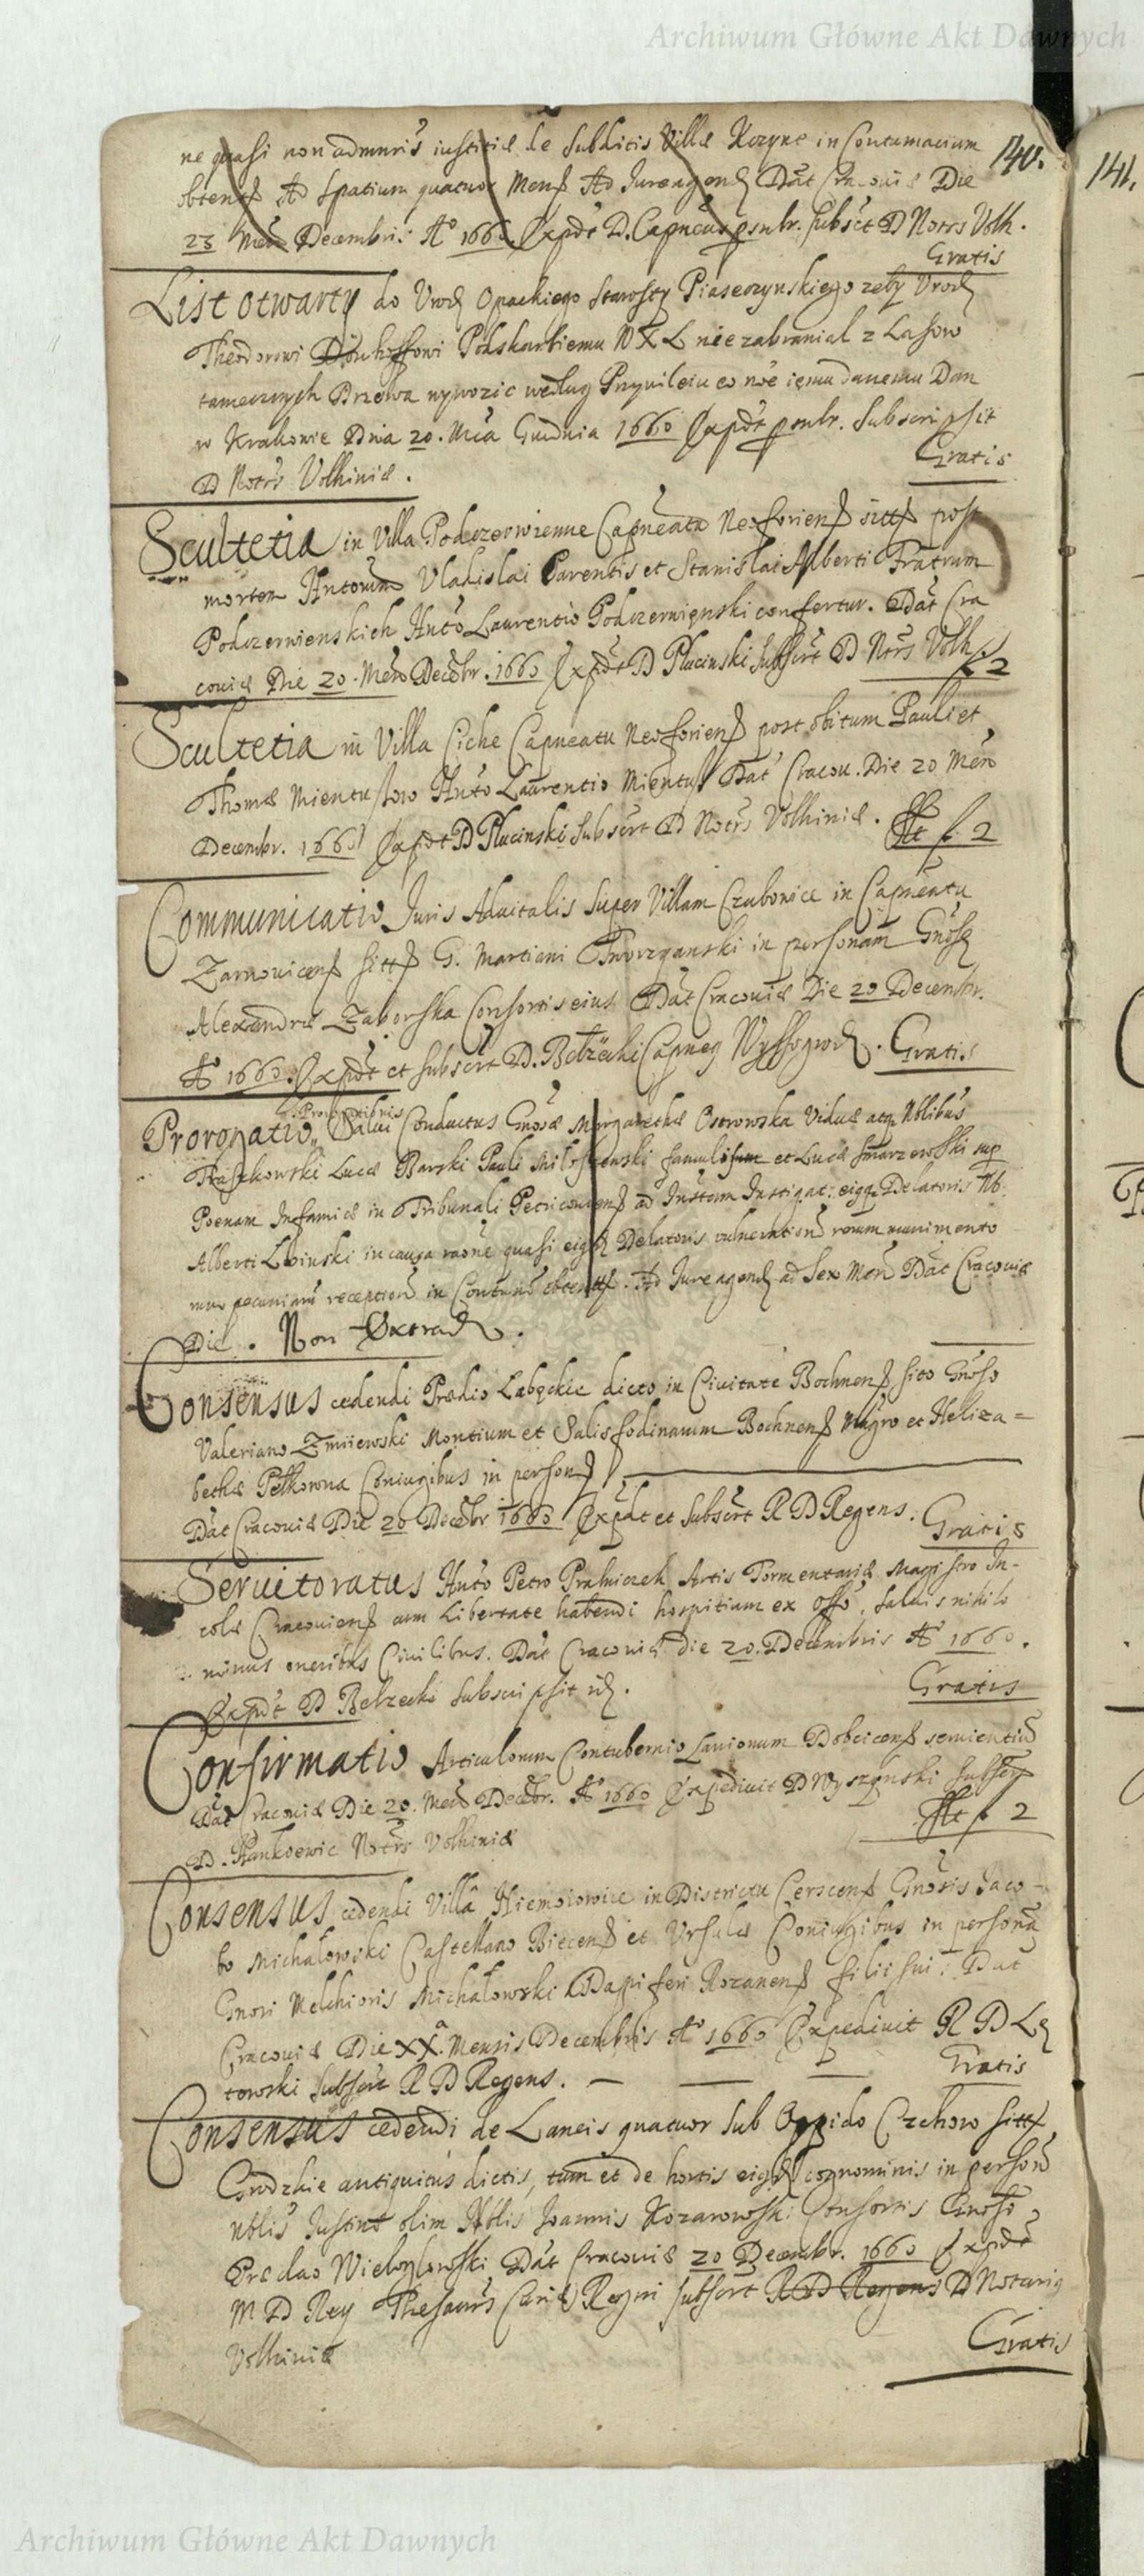 Archiwum Główne Akt Dawnych
140.
141.
ne quasi non adminris iustitiæ de Subditis Villæ Kozyne in Contumaciam
obtent Ad Spatium quatuor Mens Ad Jure agend Dat Cracoviæ Die
23 Men Decembris A° 1660. Expdt D. Capneus psnlr. subsct D Notrs Volh.
Gratis
List otwarty do Urod Opackiego Starosty Piaseczynskiego zeby Urod
Theodorowi Dönhoffowi Podskarbiemu W X L nie zabraniał z Lasow
tamecznych Drzewa wywozic według Przywileiu eo nõe iemu danemu Dan
w Krakowie Dnia 20. Mca Grudnia 1660 Expdt psnlr. Subscripsit
Gratis
D Notrs Volhiniæ.
Scultetia in Villa Podczerwienne Capneatu Neoforiens sitt post
mortem Hntorum Vladislai Parentis et Stanislai Alberti Fratrum
Podczerwienskich Hnto Laurentio Podczerwienski confertur. Dat Cra
coviæ Die 20. Men Decebr. 1660 Expdt D Plucinski Subscrt D Notrs Volh.
f 2
Scultetia in Villa Ciche Capneatu Neoforiens post obitum Pauli et
Thomæ Mientusow Hnto Laurentio Mientus Dat Cracou. Die 20 Men
Decembr. 1660 Expdt D Plucinski Subscrt D Notrs Volhiniæ.
f. 2
Communicatio Juris Aduitalis Super Villam Czubowice in Capneatu
Zarnouicens sitt G. Martiani Tworzyanski in personam Gnosæ
Alexandræ Zaborska Consortis eius Dat Cracouiæ Die 20 Decembr.
A° 1660. Expdt et subscrt D. Bełzecki Capneg Wyssogrod. Gratis
Prorogationis
Prorogatio Salui Conductus Gnosæ Margarethæ Ostrowska Viduæ atq Nblibus
Raszkowski Lucæ Barski Pauli Miloszewski famulis et Lucæ Smarzewski sup
Poenam Infamiæ in Tribunali Petricouiens ad Instam Instigat. eiq Delatoris Nb.
Alberti Lipinski in causa raone quasi eiqd Delatoris vulneration rerum munimento
rum pecuniaru reception in Contum obtent. Ad Jure agend ad Sex Men Dat Cracouiæ
Die. Non Extrad.
Consensus cedendi Prædio Labęckie dicto in Ciuitate Bochnens sito Gnoso
Valeriano Zmiiewski Montium et Salisfodinarum Bochnens Magro et Heliza=
bethæ Pełkowna Coniugibus in person
Dat Cracouiæ Die 20 Decebr 1660 Expdt et Subscrt R D Regens. Gratis
Seruitoratus Hnto Petro Pralniczek Artis Tormentariæ Magistro In-
colæ Cracouiens cum Libertate habendi hospitium ex offo, saluis nihilo
minus oneribus Ciuilibus. Dat Cracouiæ die 20. Decembris A° 1660.
Expdt D Bełzecki Subscripsit id.
Gratis
Confirmatio Articulorum Contubernio Lanionum Dobcicens seruientiu
Dat Cracouiæ Die 20. Men Decebr. A° 1660 Expediuit D Wyszynski Subscr
f. 2
D. Hankiewic Notrs Volhiniæ
Consensus cedendi Villa Niemoiowice in Districtu Cerscens Gnosis Jaco-
bo Michałowski Castellano Biecens et Ursulæ Coniugibus in persona
Gnosi Melchioris Michałowski Dapiferi Rozanens filii sui. Dat
Cracouiæ Die XXa. Mensis Decembris A° 1660 Expediuit R D Lę
towski Subscrt R D Regens.
Gratis
Consensus cedendi de Laneis quatuor sub Oppido Czchow sitt
Grodzkie antiquitus dictis, tum et de hortis eiqd cognominis in person
Nblis Justinæ olim Nblis Joannis Kozarowski Consortis Gnoso
Preclao Wielogłowski Dat Cracouiæ 20 Decembr. 1660 Expdt
M D Rey Thesaurs Cariæ Regni subscrt R D Regens D Notariq
Volhiniæ
Gratis
Archiwum Główne Akt Dawnych